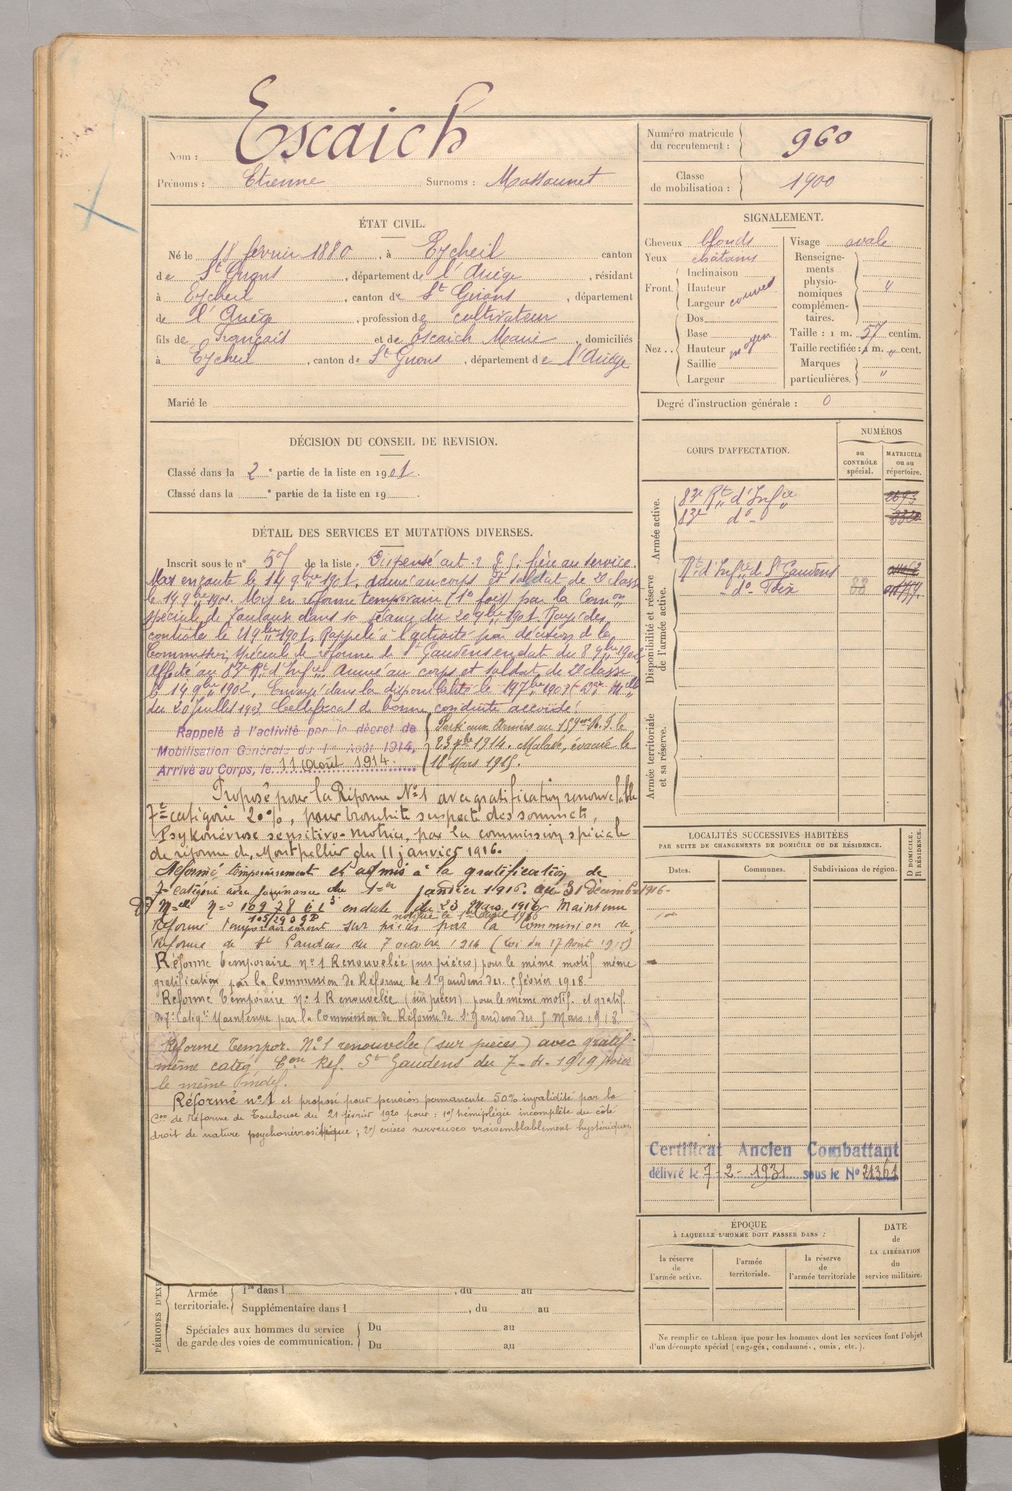 Nom : Escaich
Prénoms : Etienne Surnoms : Massounet
Numéro matricule du recrutement : 960
Classe de mobilisation : 1900
ÉTAT CIVIL.
Né le 18 février 1880, à Eycheil canton
de St Girons, département de l'Ariège, résidant
à Eycheil, canton de St Girons, département
de l'Ariège, profession de cultivateur
fils de Français et de Escaich Marie, domiciliés
à Eycheil, canton de St Girons, département de l'Ariège
Marié le
SIGNALEMENT.
Cheveux blonds
Yeux châtains
Front. Inclinaison
Hauteur
Largeur couvert
Nez.. Dos
Base
Hauteur moyen
Saillie
Largeur
Visage ovale
Renseignements physionomiques complémentaires. "
Taille : 1 m. 57 centim.
Taille rectifiée : 1 m. " cent.
Marques particulières. "
Degré d'instruction générale : 0
DÉCISION DU CONSEIL DE REVISION.
Classé dans la 2e partie de la liste en 1901.
Classé dans la e partie de la liste en 19
CORPS D'AFFECTATION.
NUMÉROS
au CONTRÔLE spécial.
MATRICULE ou au répertoire.
Armée active.
83e Rt d'Infie
83e do
Disponibilité et réserve de l'armée active.
Rt d'Infie de St Gaudens
do Foix
Armée territoriale et sa réserve.
DÉTAIL DES SERVICES ET MUTATIONS DIVERSES.
Inscrit sous le n° 57 de la liste. Dispensé art. 21 frère au service.
Mis en route le 14 9bre 1901. Arrivé au corps et soldat de 2e classe
le 14 9bre 1901. Mis en réforme temporaire (1e fois) par la Comon
spéciale de Toulouse dans sa séance du 20 9bre 1901. Rayé des
contrôles le 21 9bre 1901. Rappelé à l'activité par décision de la
Commission spéciale de réforme de St Gaudens en date du 8 1902
Affecté au 83e Rt d'Infie Arrivé au corps et soldat de 2e classe
le 14 9bre 1902. Envoyé dans la disponibilité le 19 7bre 1903
du 20 Juillet 1903 Certificat de bonne conduite accordé.
Rappelé à l'activité par le décret de
Mobilisation Générale du 1er Août 1914,
Arrivé au Corps, le 11 Août 1914.
Parti aux Armées au 159e R.I. le
23 1914. Malade, évacué le
18 Mars 1915.
Proposé pour la Réforme N°1 avec gratification renouvelable
7e catégorie 20%, pour bronchite suspecte des sommets,
Psykonévrose sensitivo-motrice, par la commission spéciale
de réforme de Montpellier du 11 janvier 1916.
Réformé temporairement et admis à la gratification de
7e catégorie avec jouissance du 1er janvier 1916 au 31 décembre 1916
en date du 23 Mars 1916 Maintenu
notifié le 1er Avril 1916
Réformé temporairement sur pièces par la Commission de
Réforme de St Gaudens du 7 octobre 1916 (Loi du 17 Août 1915)
Réforme temporaire n°1 Renouvelée (sur pièces) pour le même motif même
gratification par la Commission de Réforme de St Gaudens du février 1918
Réforme Temporaire N° 1 Renouvelée (sur pièces) pour le même motif et gratif.
de 7e catégie Maintenue par la Commission de Réforme de St Gaudens du 5 Mars 1918
Réforme Tempor. N°1 renouvelée (sur pièces) avec gratif.
même catég. Con Réf. St Gaudens du 7-4-1919 pour
le même motif.
Réformé n°1 et proposé pour pension permanente 50% invalidité par la
Con de Réforme de Toulouse du 21 février 1920 pour : 1°) hémiplégie incomplète du côté
droit de nature psychonévrosithique ; 2°) crises nerveuses vraisemblablement hystériques
LOCALITÉS SUCCESSIVES HABITÉES
PAR SUITE DE CHANGEMENTS DE DOMICILE OU DE RÉSIDENCE.
Dates. Communes. Subdivisions de région. D DOMICILE. R RÉSIDENCE.
Certificat Ancien Combattant
délivré le 7-2-1931 sous le N° 21361
ÉPOQUE
À LAQUELLE L'HOMME DOIT PASSER DANS :
la réserve de l'armée active.
l'armée territoriale.
la réserve de l'armée territoriale
DATE de LA LIBÉRATION du service militaire.
Ne remplir ce tableau que pour les hommes dont les services font l'objet
d'un décompte spécial (engagés, condamnés, omis, etc.).
PÉRIODES D'EXE
Armée territoriale. 1re dans l , du au
Supplémentaire dans l , du au
Spéciales aux hommes du service de garde des voies de communication. Du au
Du au